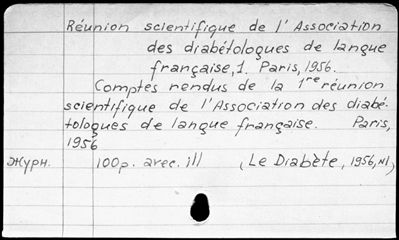 Réunion scientifique de l'Association
des diabétologues de langue
française, 1. Paris, 1956.
Comptes rendus de la 1re réunion
scientifique de l'Association des diabé-
tologues de langue française. Paris,
1956
Журн. 100p. avec. ill (Le Diabète, 1956, №1)